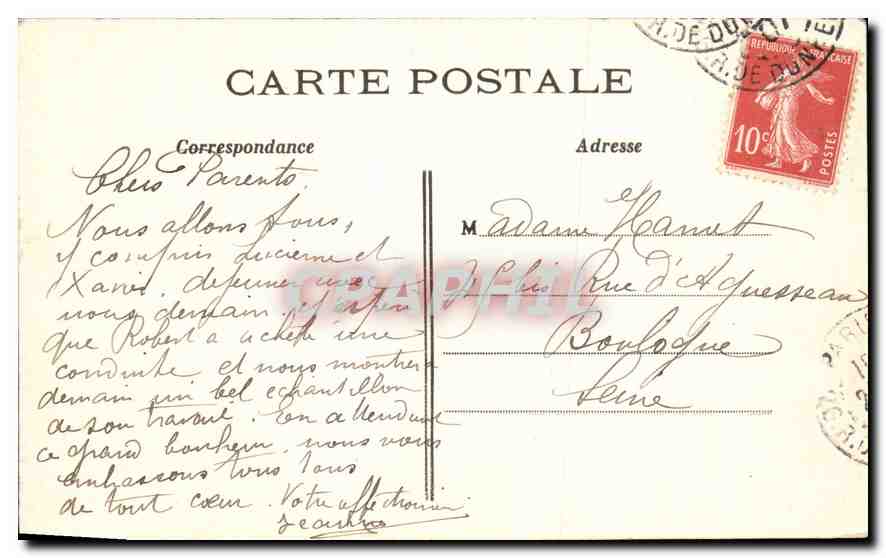 CARTE POSTALE
Correspondance
Adresse
REPUBLIQUE FRANÇAISE
10c
POSTES
R. DE DUNKE
PARIS
Chers Parents.
Nous allons tous,
y compris Lucienne et
Xavier, déjeuner avec
nous demain, et
que Robert a acheté une
conduite et nous montrera
demain un bel echantillon
de son travail. En attendant
ce grand bonheur, nous vous
embrassons tous
de tout cœur. Votre affectionnée
Jeanne
Madame Hamet
bis Rue d'Aguesseau
Boulogne
Seine
CPAPHIL